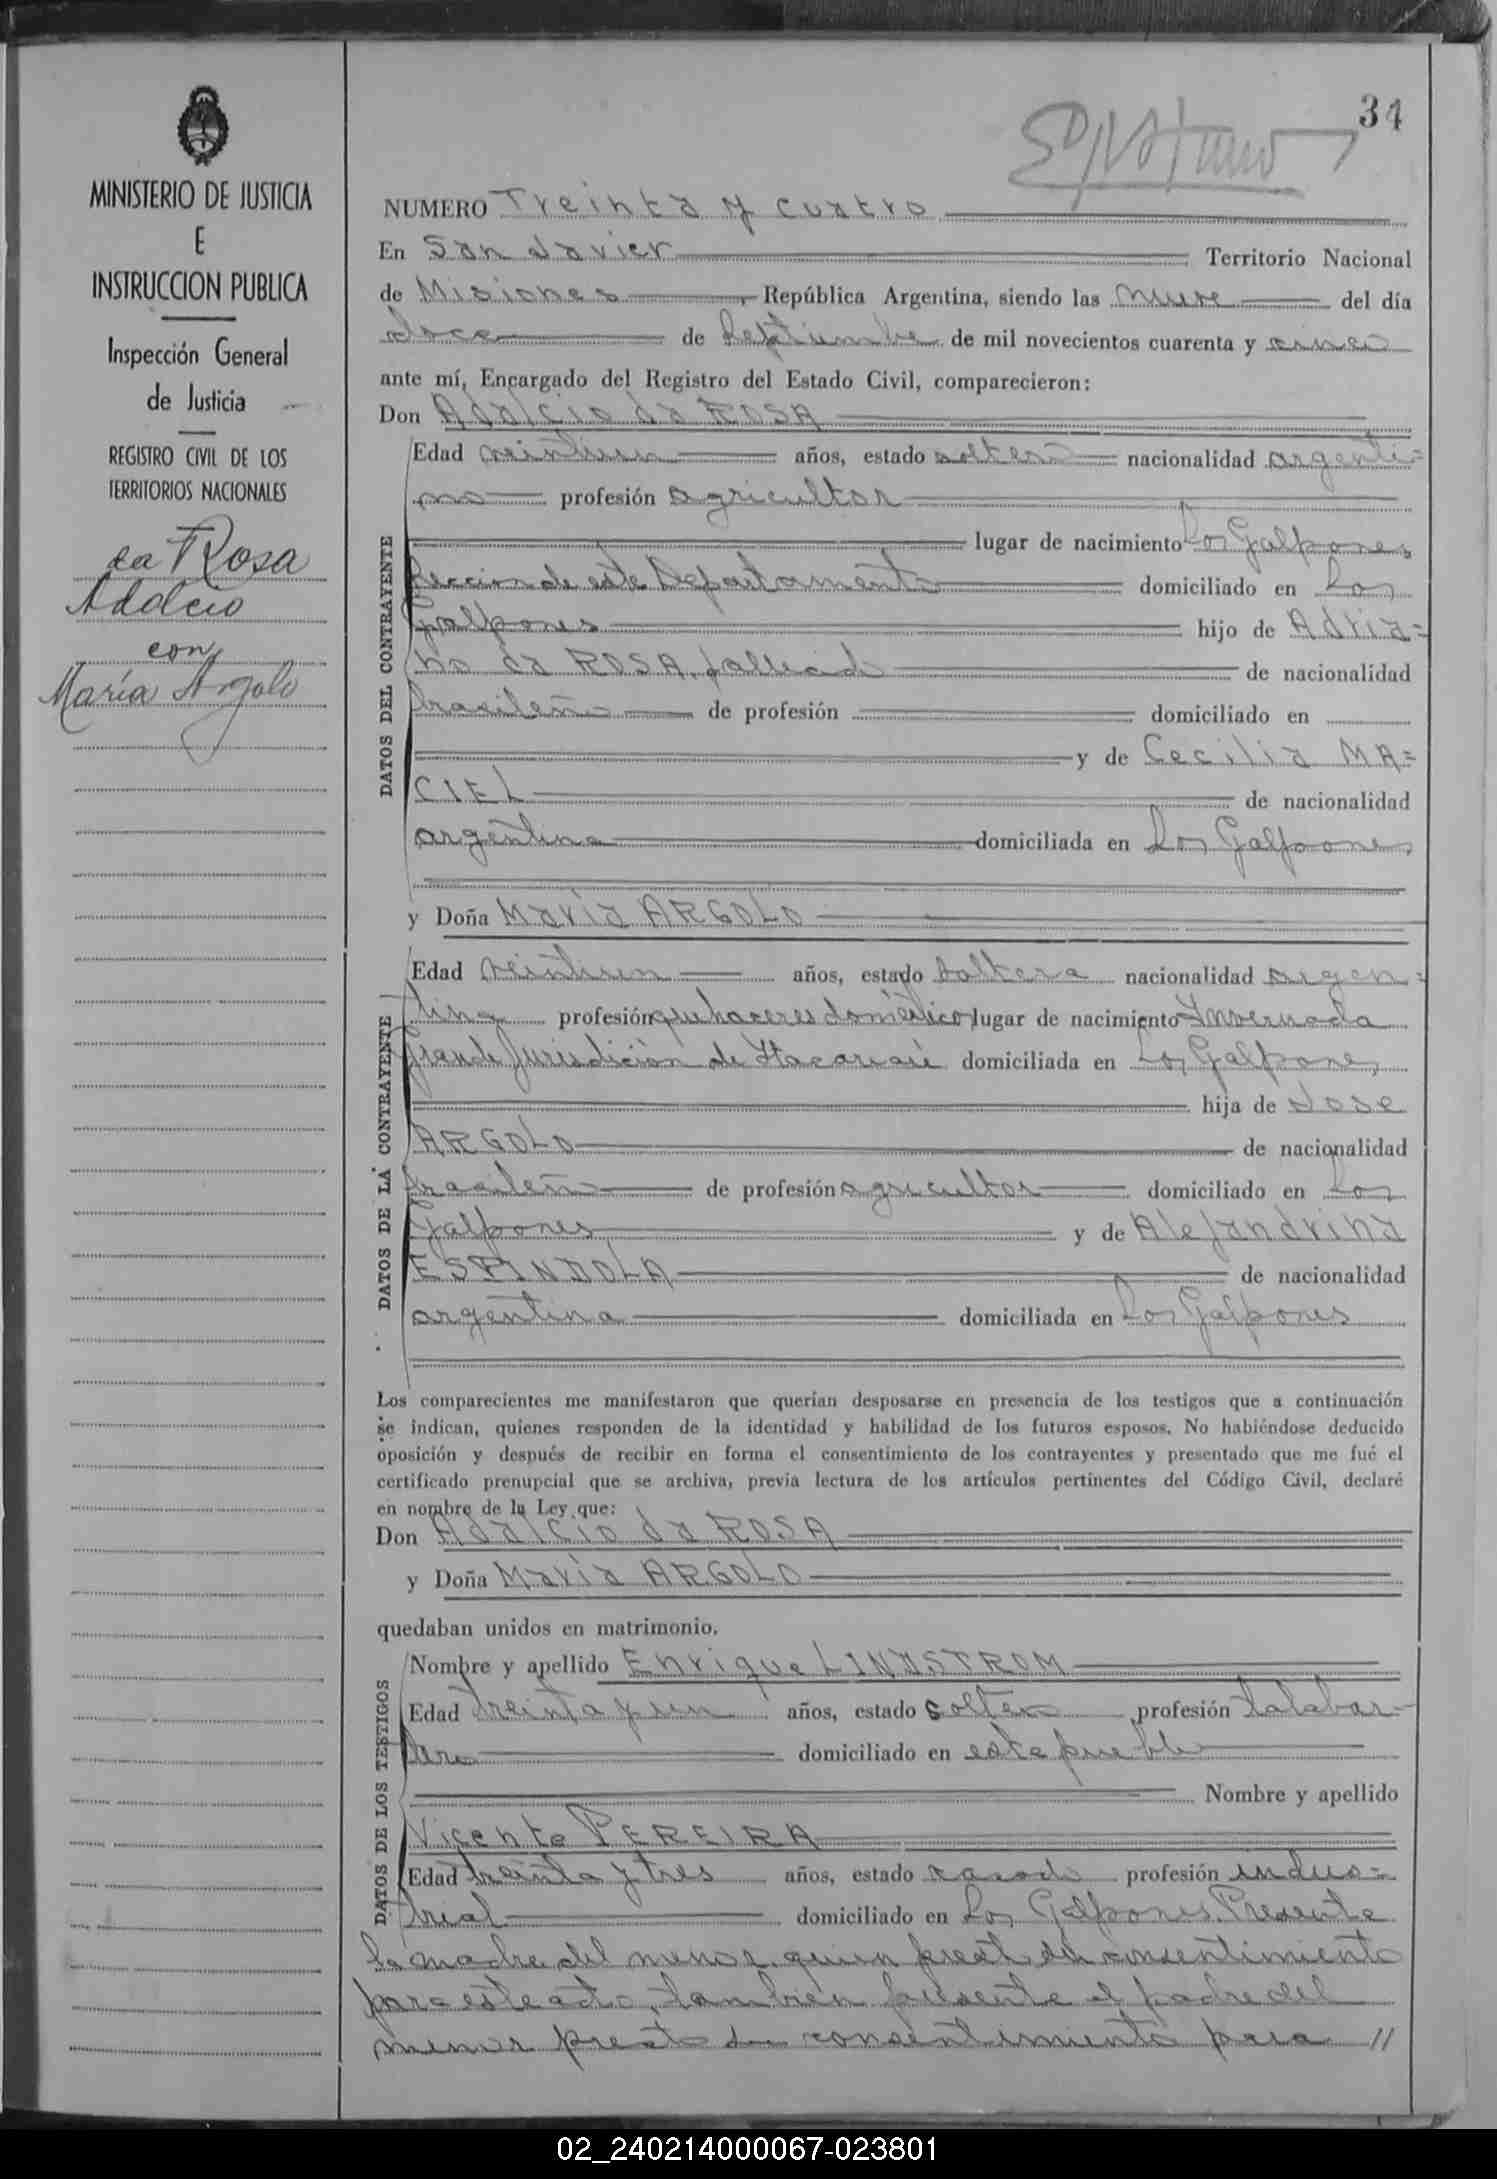 34
MINISTERIO DE JUSTICIA
E
INSTRUCCION PUBLICA
Inspección General
de Justicia
REGISTRO CIVIL DE LOS
TERRITORIOS NACIONALES
da Rosa
Adalcio
con
María Argolo
NUMERO Treinta y cuatro
En San Javier Territorio Nacional
de Misiones, República Argentina, siendo las nueve del día
doce de Septiembre de mil novecientos cuarenta y cinco
ante mí, Encargado del Registro del Estado Civil, comparecieron:
Don Adalcio da ROSA
DATOS DEL CONTRAYENTE
Edad veintiun años, estado soltero nacionalidad argenti=
no profesión agricultor
lugar de nacimiento Los Galpones
Seccion de este Departamento domiciliado en Los
Galpones hijo de Adria=
no da ROSA, fallecido de nacionalidad
brasileño de profesión domiciliado en
y de Cecilia MA=
CIEL de nacionalidad
argentina domiciliada en Los Galpones
y Doña Maria ARGOLO
DATOS DE LA CONTRAYENTE
Edad veintiun años, estado soltera nacionalidad argen=
tina profesión quehaceres domésticos lugar de nacimiento Invernada
Grande Jurisdición de Itacaruaré domiciliada en Los Galpones
hija de Jose
ARGOLO de nacionalidad
brasileño de profesión agricultor domiciliado en Los
Galpones y de Alejandrina
ESPINDOLA de nacionalidad
argentina domiciliada en Los Galpones
Los comparecientes me manifestaron que querían desposarse en presencia de los testigos que a continuación
se indican, quienes responden de la identidad y habilidad de los futuros esposos. No habiéndose deducido
oposición y después de recibir en forma el consentimiento de los contrayentes y presentado que me fué el
certificado prenupcial que se archiva, previa lectura de los artículos pertinentes del Código Civil, declaré
en nombre de la Ley que:
Don Adalcio da ROSA
y Doña Maria ARGOLO
quedaban unidos en matrimonio.
DATOS DE LOS TESTIGOS
Nombre y apellido Enrique LINDSTROM
Edad treinta y un años, estado soltero profesión talabar-
tero domiciliado en este pueblo
Nombre y apellido
Vicente PEREIRA
Edad treinta y tres años, estado casado profesión indus=
trial domiciliado en Los Galpones. Presente
la madre del menor quien presta su consentimiento
para este acto, tambien presente el padre del
menor presto su consentimiento para //
02_240214000067-023801